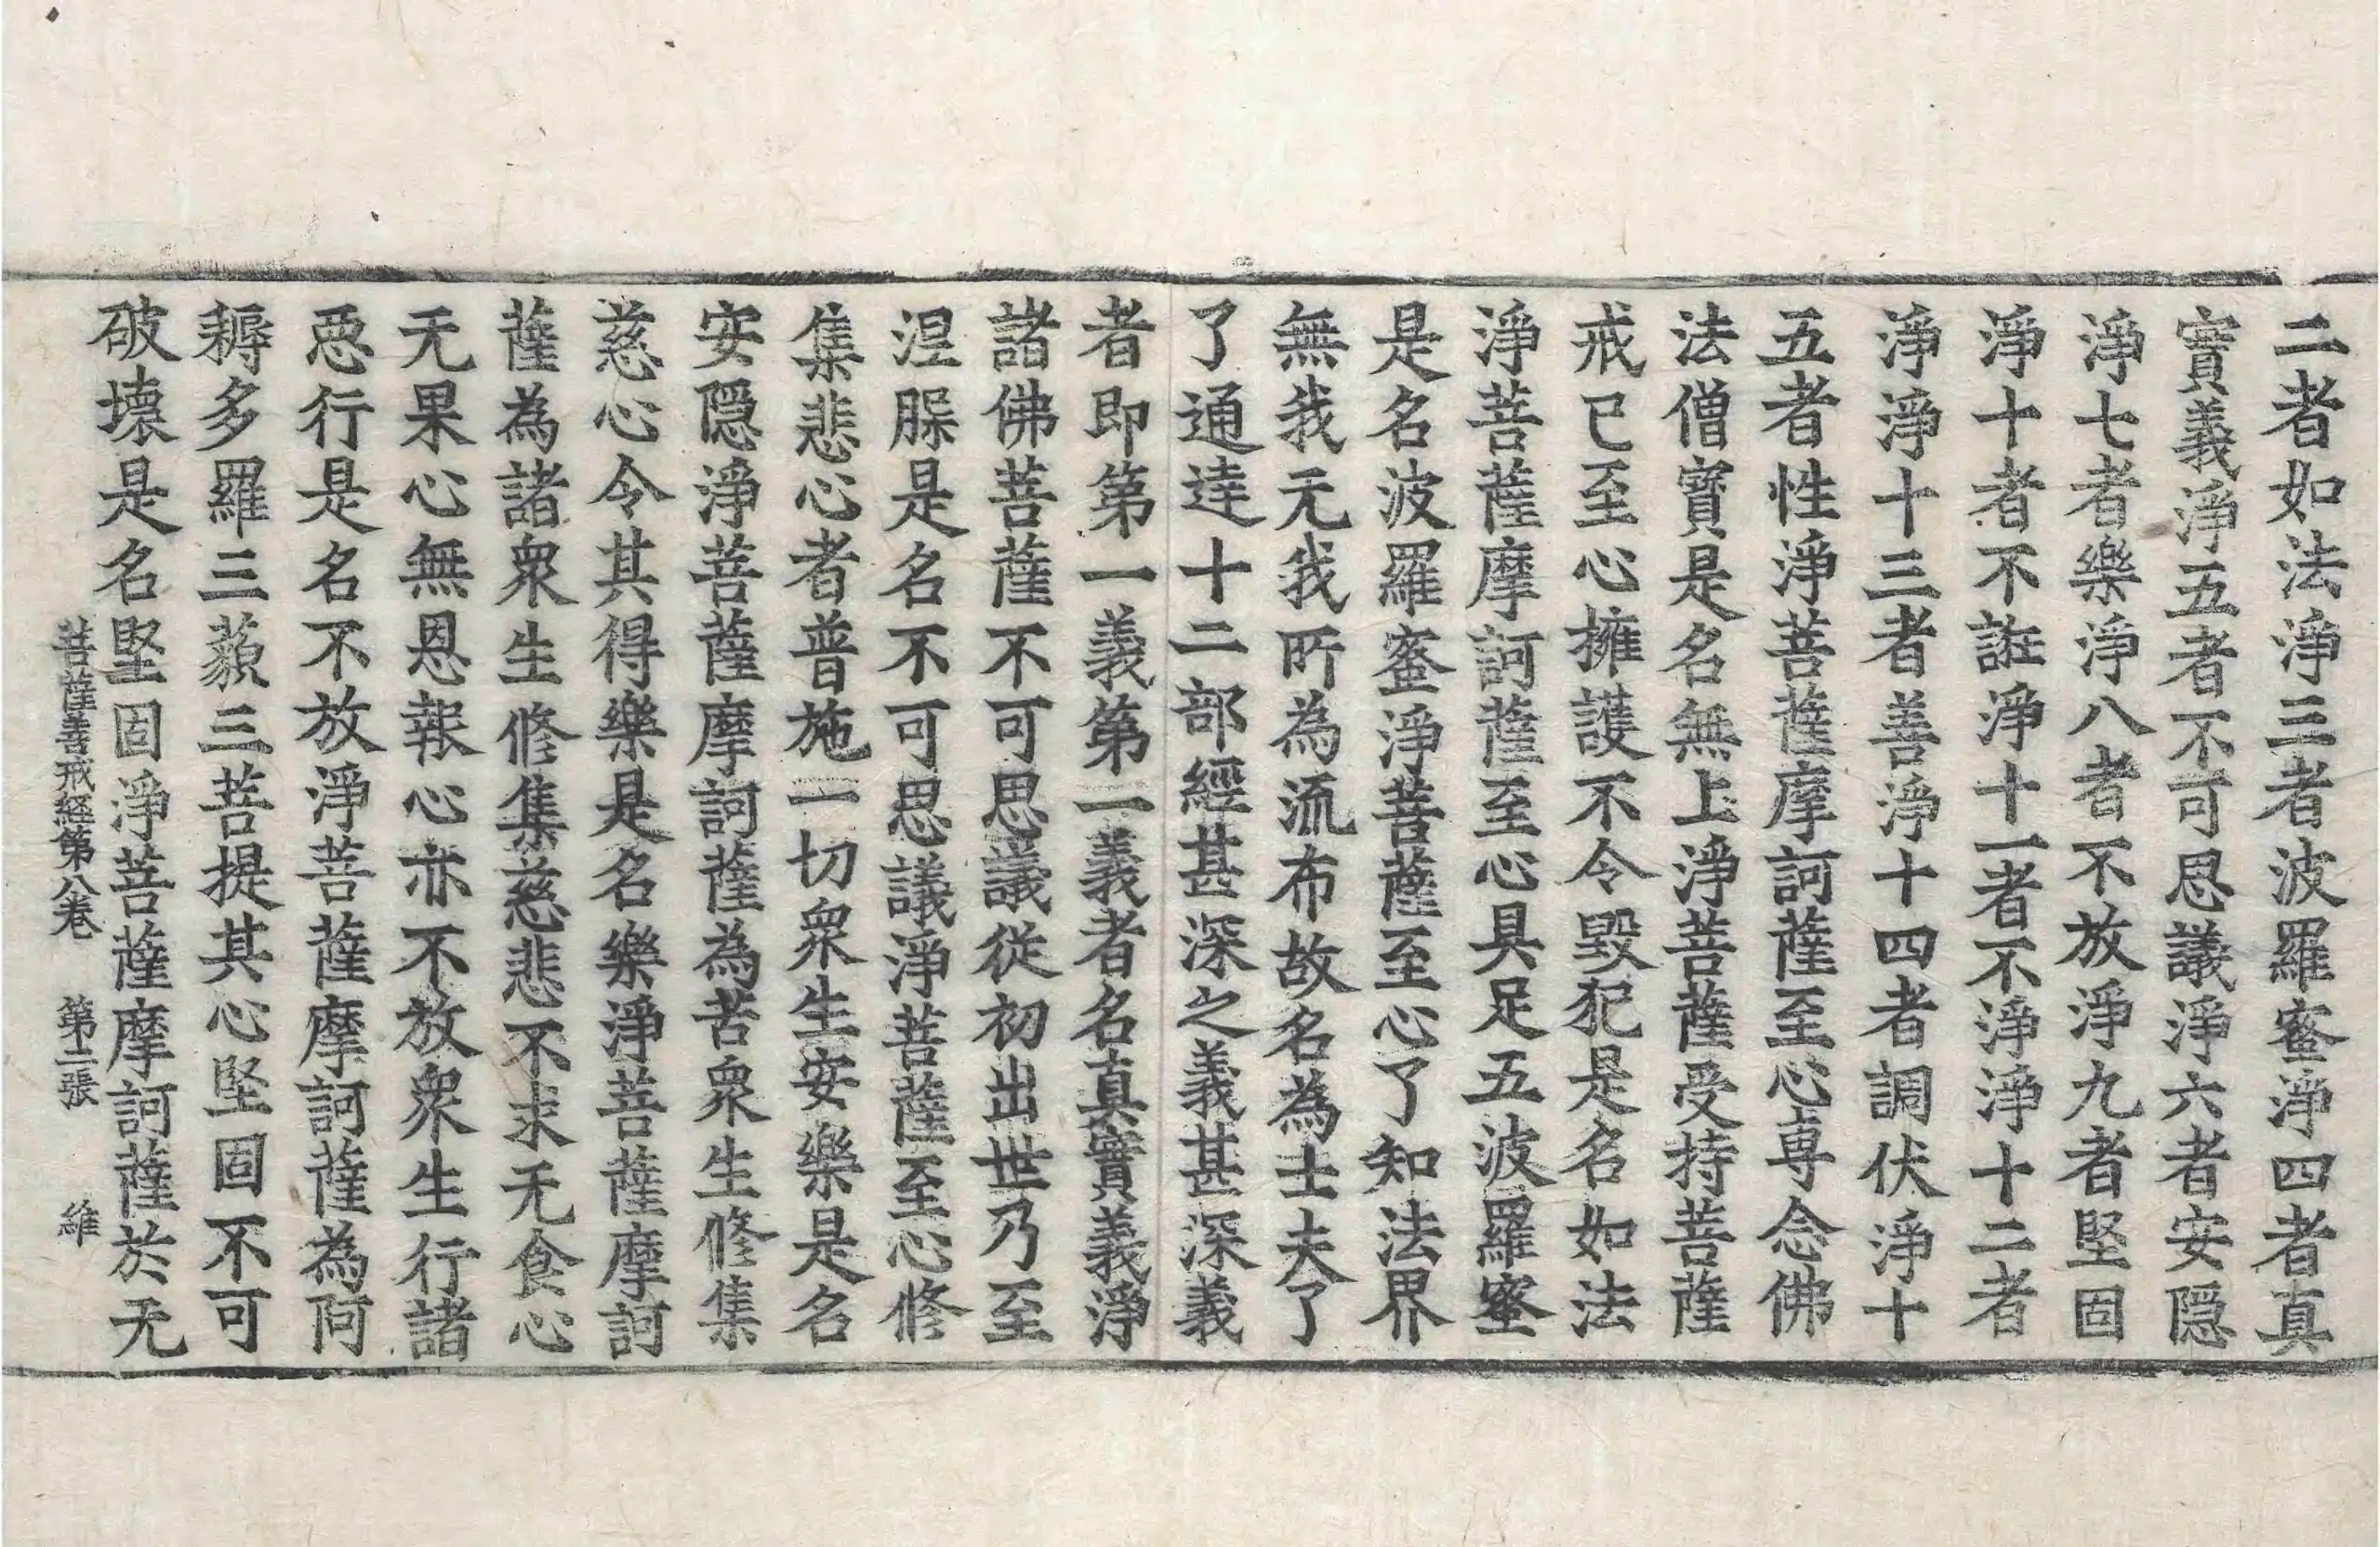 二者如法淨三者波羅蜜淨四者真
實義淨五者不可思議淨六者安隱
淨七者樂淨八者不放淨九者堅固
淨十者不誑淨十一者不淨淨十二者
淨淨十三者善淨十四者調伏淨十
五者性淨菩薩摩訶薩至心專念佛
法僧寶是名無上淨菩薩受持菩薩
戒已至心擁護不令毀犯是名如法
淨菩薩摩訶薩至心具足五波羅蜜
是名波羅蜜淨菩薩至心了知法界
無我无我所為流布故名為士夫了
了通達十二部經甚深之義甚深義
者即第一義第一義者名真實義淨
諸佛菩薩不可思議從初出世乃至
涅槃是名不可思議淨菩薩至心修
集悲心者普施一切眾生安樂是名
安隱淨菩薩摩訶薩為苦眾生修集
慈心令其得樂是名樂淨菩薩摩訶
薩為諸眾生修集慈悲不求无食心
无果心無恩報心亦不放眾生行諸
惡行是名不放淨菩薩摩訶薩為阿
耨多羅三藐三菩提其心堅固不可
破壞是名堅固淨菩薩摩訶薩於无
菩薩善戒経第八卷 第二張 維